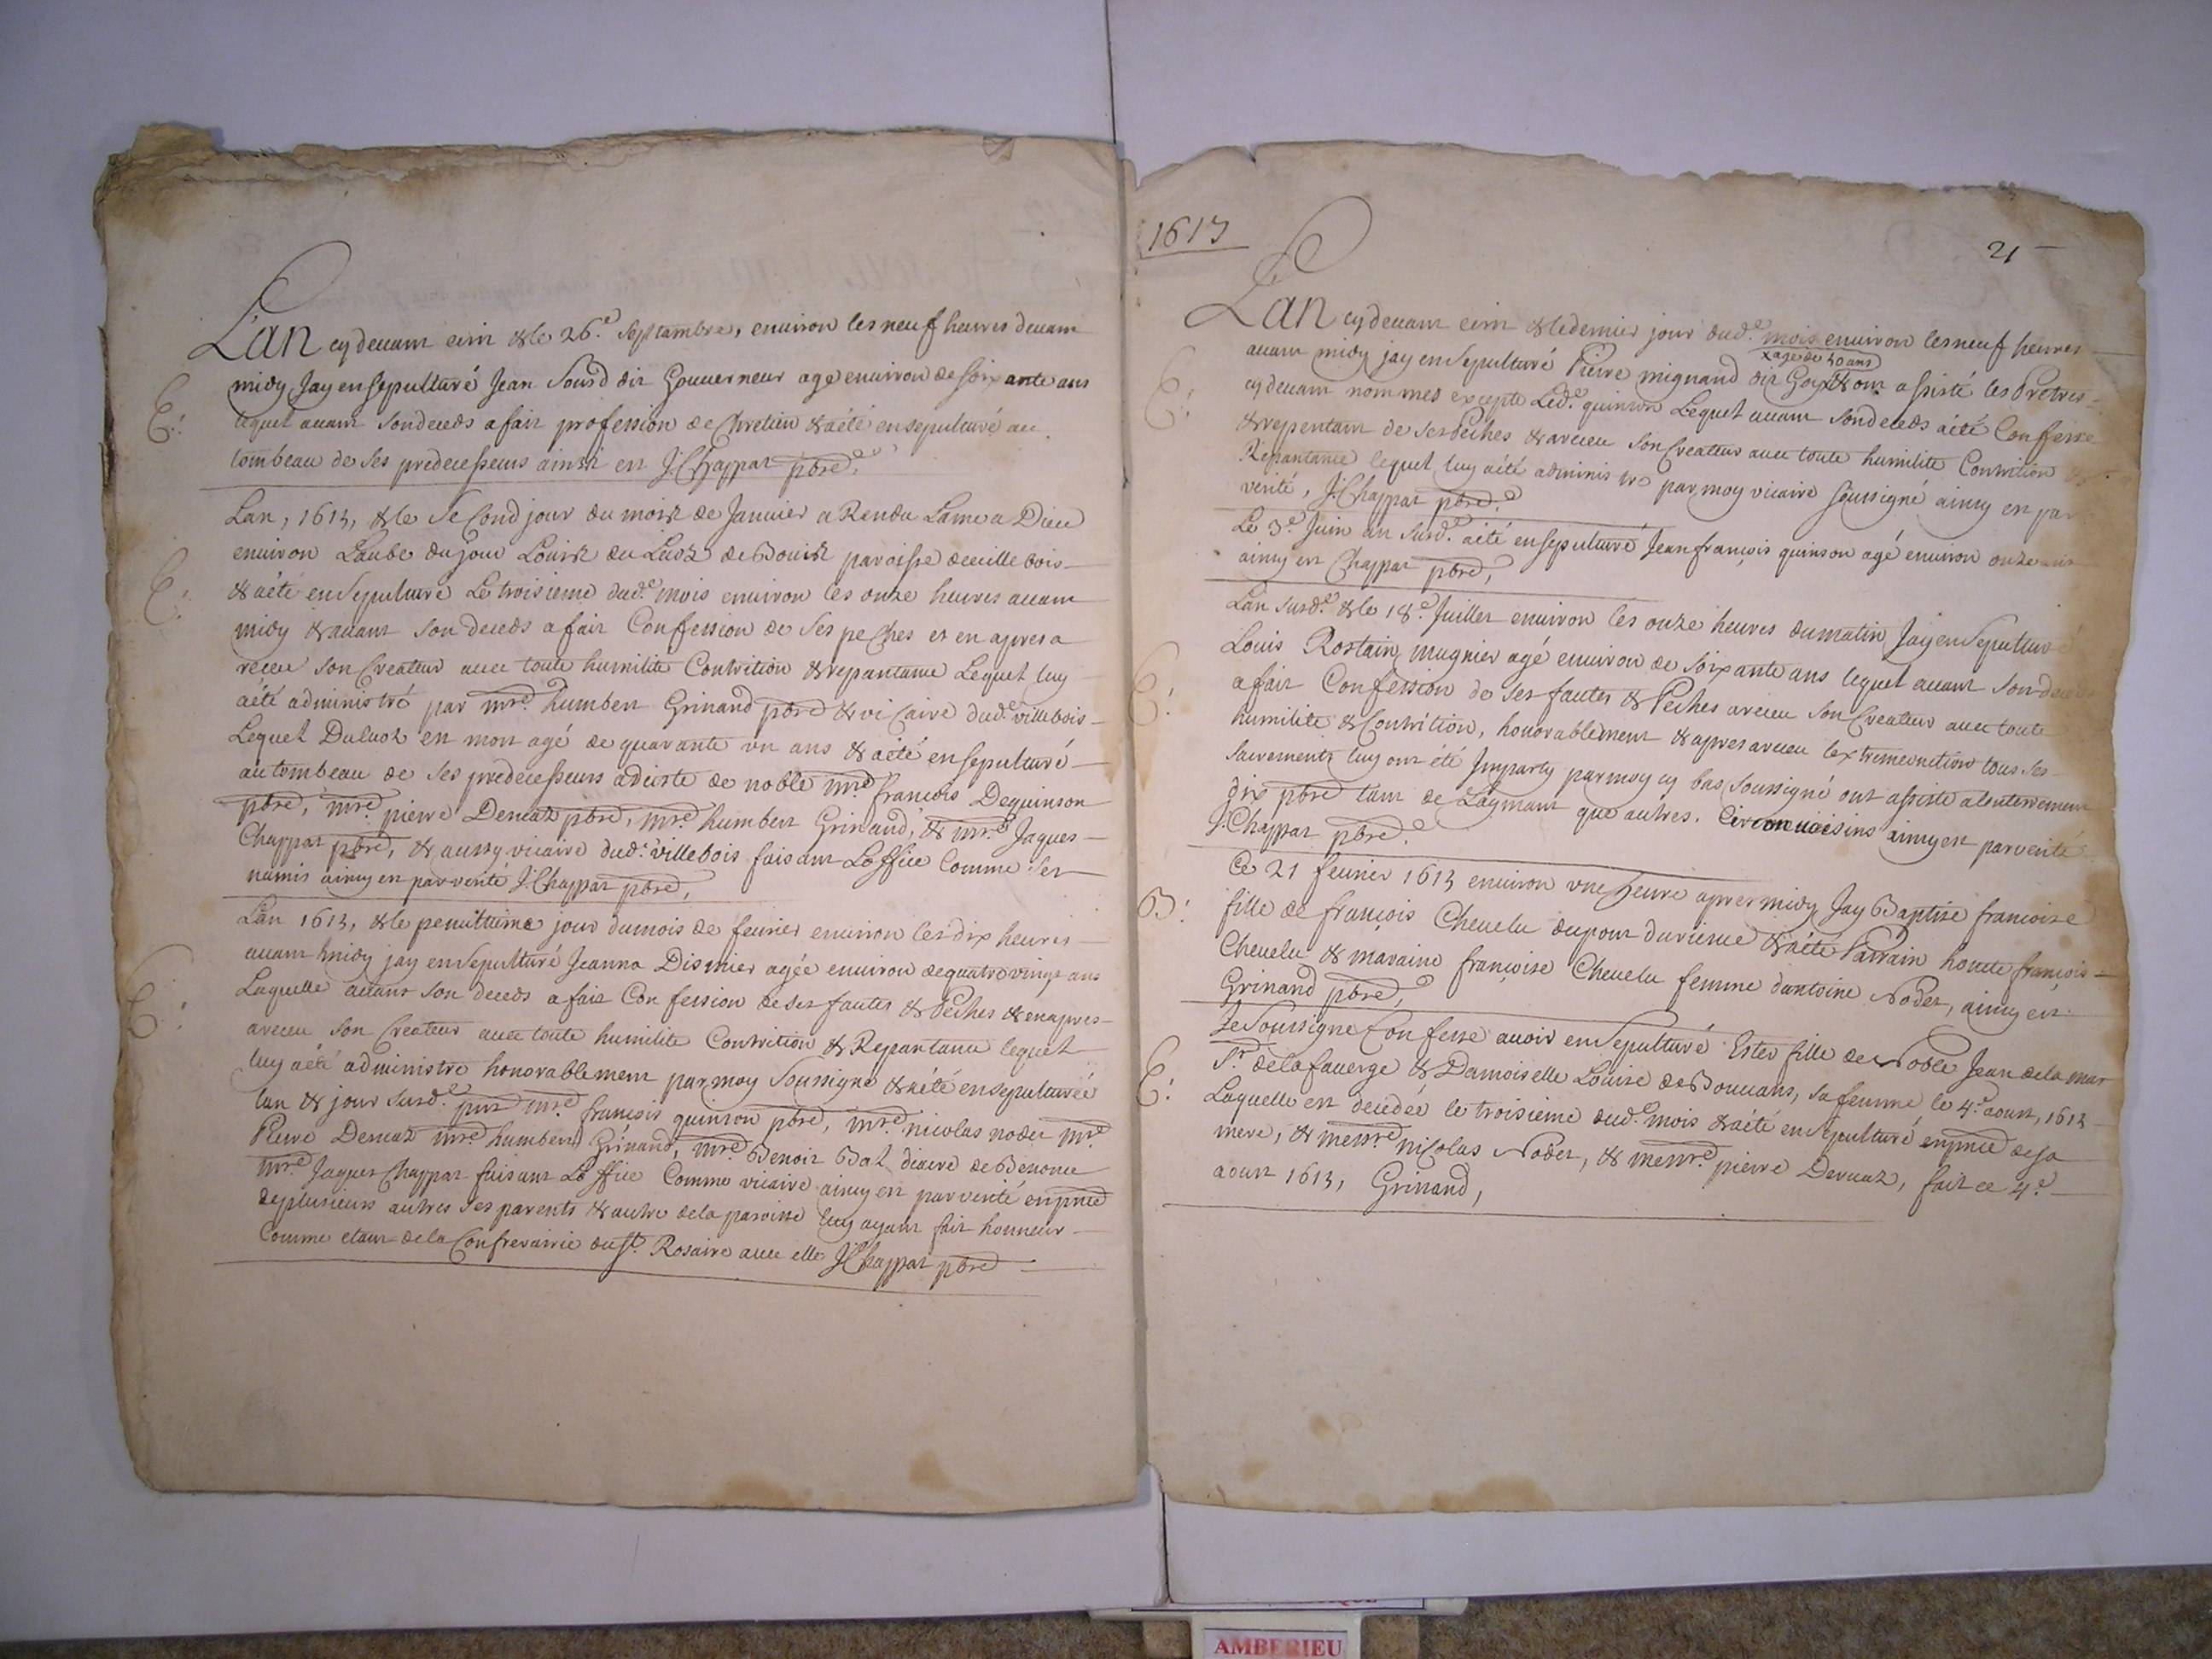 Lan cy devant ecrit & le 26.e Septambre, environ les neuf heures devant
midy Jay ensepulturé Jean Sourd dit Gouverneur age environ de soixante ans
lequel avant son deceds a fait profession de Chretien & a été ensepulturé au
tombeau de ses predecesseurs ainsi est J: Chappat pbre.
Lan, 1613, & le Second jour du mois de Janvier a Rendu Lame a Dieu
environ Laube du jour Louis du Luoz de Bouis paroisse de villebois
& a été ensepulturé Le troisieme dud.e mois environ les onze heures avant
midy & avant son deceds a fait Confession de ses peches et en apres a
receu son Createur avec toute humilite Contrition & repantance Lequel luy
a été administré par mre. humbert Grinand pbre & vicaire dud.e villebois
Lequel Duluoz est mort agé de quarante un ans & a été ensepulturé
au tombeau de ses predecesseurs adiste de noble mre françois Dequinson
pbre, mre. pierre Deruaz pbre, mre. humbert Grinand, & mre. Jaques
Chappat pbre, & aussy vicaire dud.e villebois faisant Loffice Comme
ainsy est par verité J: Chappat pbre,
Lan 1613, & le penultieme jour du mois de fevrier environ les dix heures
avant midy jay ensepulturé Jeanna Dismier agée environ de quatre vingt ans
Laquelle avant son deceds a fait Confession de ses fautes & Peches & en apres
a receu son Createur avec toute humilite Contrition & Repantance lequel
luy a été administre honorablement par moy Soussigne & a été ensepulturée
lan & jour susd.e mre francois quinson pbre, mre. nicolas noder mre
Pierre Deruaz mre humbert Grinand, mre. Benoit Bal diacre de Benonce
mre. Jaques Chappat faisant Loffice Comme vicaire ainsy est par verité en pnce
de plusieurs autres ses parents & autre de la paroisse luy ayant fait honneur
Comme etant de la Confrerairie du St. Rosaire avec elle J: Chappat pbre
1613
21
Lan cy devant ecrit & le dernier jour dud.e mois environ les neuf heures
x age de 50 ans
avant midy jay ensepulturé Pierre mignand dit Goy x & ont assisté les Pretres
cy devant nommes excepte Led.e quinson Lequel avant son deceds a été Confesse
& repentant de ses Peches & a receu son Createur avec toute humilite Contrition &
Repantance lequel luy a été administre par moy vicaire soussigné ainsy est par
verité, J: Chappat pbre.
Le 3.e Juin an susd.e a été ensepulturé Jean françois quinson agé environ onze ans
ainsy est Chappat pbre,
Lan susd.e & le 18.e Juillet environ les onze heures du matin Jay ensepulturé
Louis Rostain, mugnier agé environ de soixante ans lequel avant son deceds
a fait Confession de ses fautes & Peches a receu son Createur avec toute
humilite & Contrition, honorablement & apres a receu lextremeonction tous ses
sacrements luy ont été Imparty par moy cy bas Soussigné ont assisté a lenterrement
dix pbre tant de Lagnant que autres. Circonvoisins ainsy est par verité
J: Chappat pbre.
Ce 21 fevrier 1613 environ une heure apres midy Jay Baptise francoise
B: fille de françois Chevelu du pont & a été Parrain honete françois
Chevelu & maraine françoise Chevelu femme dantoine Noder, ainsy est
Grinand pbre,
Je Soussigne Confesse avoir ensepulturé Ester fille de Noble Jean de la mar
Sr. de la faverge & Damoiselle Louise de Bouvans, sa femme le 4.e aoust, 1613
Laquelle est decedée le troisieme dud.e mois & a été ensepulturé en pnce de sa
mere, & messre nicolas Noder, & messre. pierre Deruaz, fait ce 4.e
aoust 1613, Grinand,
AMBERIEU